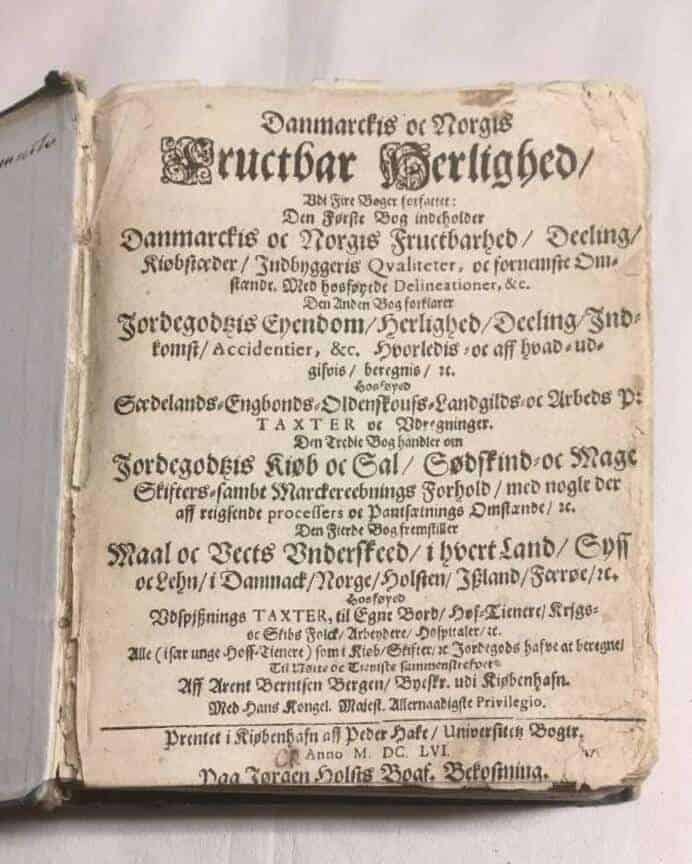 Danmarckis oc Norgis
Fructbar Herlighed/
Vdi Fire Bøger forfattet:
Den Første Bog indeholder
Danmarckis oc Norgis Fructbarhed/ Deeling/
Kiøbstæder/ Indbyggeris Qvaliteter, oc fornemste Om-
stænde. Med hosføyede Delineationer, &c.
Den Anden Bog forklarer
Jordegodtzis Eyendom/Herlighed/Deeling/Ind-
komst/ Accidentier, &c. Hvorledis-oc aff hvad-ud-
gifvis/ beregnis/ ꝛc.
Hosføyed
Sædelands-Engbonds-Oldenskoufs-Landgilds-oc Arbeds P:
TAXTER oc Vdregninger.
Den Tredie Bog handler om
Jordegodtzis Kiøb oc Sal/ Sødskind-oc Mage
Skifters-sambt Marckereebnings Forhold/ med nogle der
aff reigsende processers oc Pantsætnings Omstænde/ ꝛc.
Den Fierde Bog fremstiller
Maal oc Vects Vnderskeed/ i hvert Land/ Syss
oc Lehn/ i Danmack/Norge/Holsten/ Ißland/Færrøe/ꝛc.
Hosføyed
Vdspißnings TAXTER, til Egne Bord/ Hof-Tienere/ Krigs-
oc Skibs Folck/ Arbeydere/ Hospitaler/ ꝛc.
Alle (især unge Hoff-Tienere) som i Kiøb/Skifter/ ꝛc Jordegods hafve at beregne/
Til Nøtte oc Tieniste sammenskrefvet
Aff Arent Berntsen Bergen/ Byeskr. udi Kiøbenhafn.
Med Hans Kongel. Majest. Allernaadigste Privilegio.
Prentet i Kiøbenhafn aff Peder Hake/ Universitetz Bogtr.
Anno M. DC. LVI.
Paa Jørgen Holsts Bogf. Bekostning.